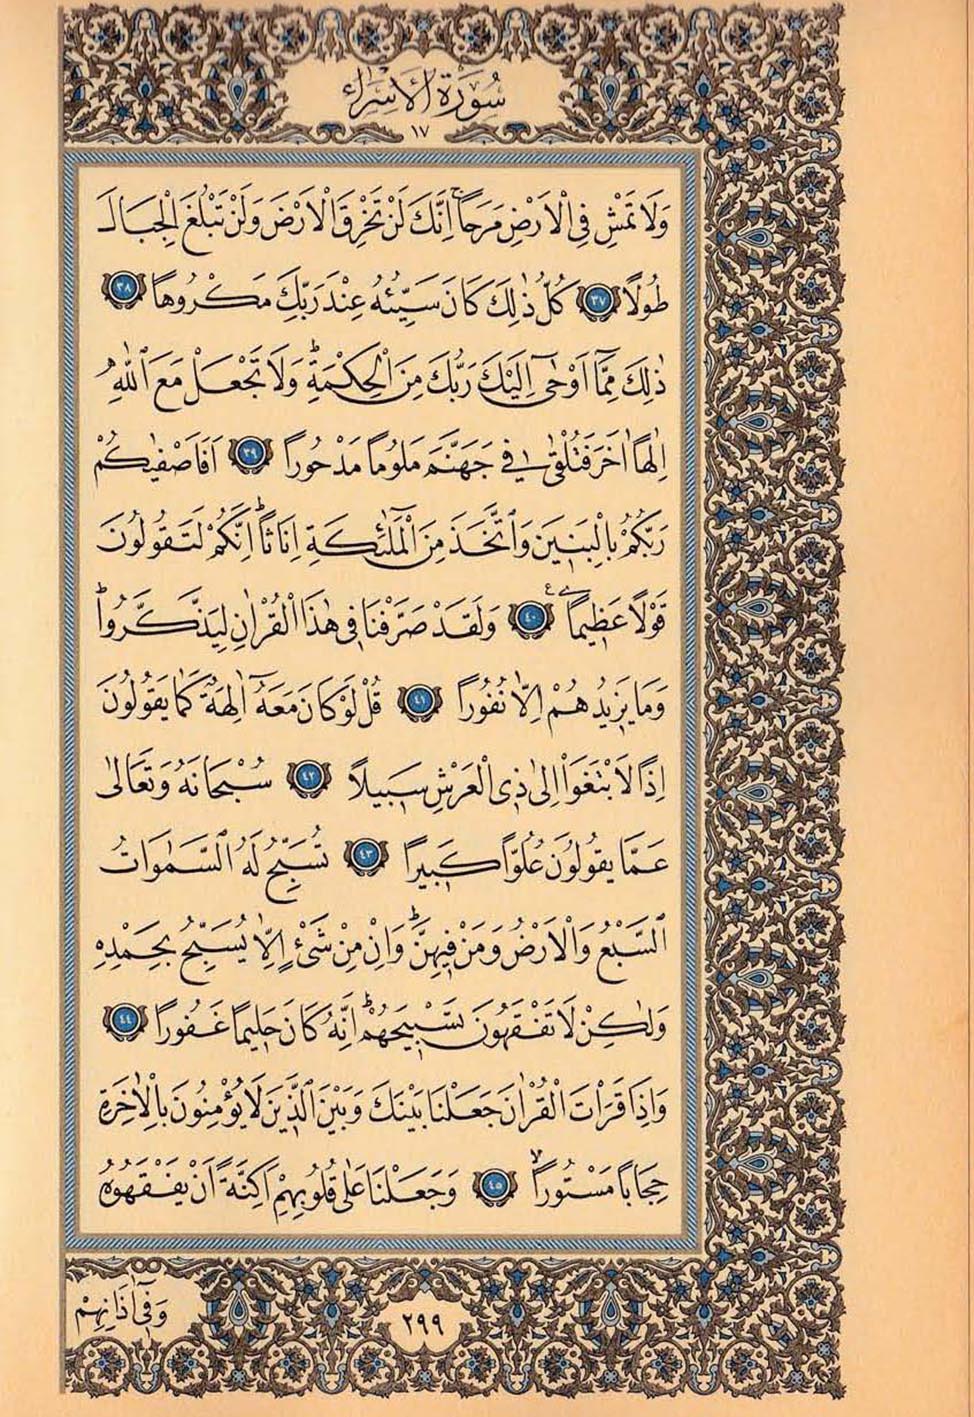 سُورَةُ الْاِسْرَاءِ
١٧
وَلَا تَمْشِ فِى الْاَرْضِ مَرَحًاۚ اِنَّكَ لَنْ تَخْرِقَ الْاَرْضَ وَلَنْ تَبْلُغَ الْجِبَالَ
طُولًا ٣٧ كُلُّ ذٰلِكَ كَانَ سَيِّئُهُ عِنْدَ رَبِّكَ مَكْرُوهًا ٣٨
ذٰلِكَ مِمَّٓا اَوْحٰٓى اِلَيْكَ رَبُّكَ مِنَ الْحِكْمَةِۜ وَلَا تَجْعَلْ مَعَ اللّٰهِ
اِلٰهًا اٰخَرَ فَتُلْقٰى فِى جَهَنَّمَ مَلُومًا مَدْحُورًا ٣٩ اَفَاَصْفٰيكُمْ
رَبُّكُمْ بِالْبَنِينَ وَاتَّخَذَ مِنَ الْمَلٰٓئِكَةِ اِنَاثًاۜ اِنَّكُمْ لَتَقُولُونَ
قَوْلًا عَظِيمًا۟ ٤٠ وَلَقَدْ صَرَّفْنَا فِى هٰذَا الْقُرْاٰنِ لِيَذَّكَّرُواۜ
وَمَا يَزِيدُهُمْ اِلَّا نُفُورًا ٤١ قُلْ لَوْ كَانَ مَعَهُٓ اٰلِهَةٌ كَمَا يَقُولُونَ
اِذًا لَابْتَغَوْا اِلٰى ذِى الْعَرْشِ سَبِيلًا ٤٢ سُبْحَانَهُ وَتَعَالٰى
عَمَّا يَقُولُونَ عُلُوًّا كَبِيرًا ٤٣ تُسَبِّحُ لَهُ السَّمٰوَاتُ
السَّبْعُ وَالْاَرْضُ وَمَنْ فِيهِنَّۜ وَاِنْ مِنْ شَىْءٍ اِلَّا يُسَبِّحُ بِحَمْدِهِ
وَلٰكِنْ لَا تَفْقَهُونَ تَسْبِيحَهُمْۜ اِنَّهُ كَانَ حَلِيمًا غَفُورًا ٤٤
وَاِذَا قَرَاْتَ الْقُرْاٰنَ جَعَلْنَا بَيْنَكَ وَبَيْنَ الَّذِينَ لَا يُؤْمِنُونَ بِالْاٰخِرَةِ
حِجَابًا مَسْتُورًاۙ ٤٥ وَجَعَلْنَا عَلٰى قُلُوبِهِمْ اَكِنَّةً اَنْ يَفْقَهُوهُ
وَفِٓى اٰذَانِهِمْ
٢٩٩